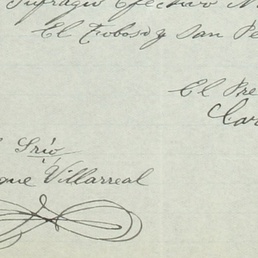 Sufragio Efectivo N
El Toboso y San Pe
El Pre
Car
Srio
que Villarreal